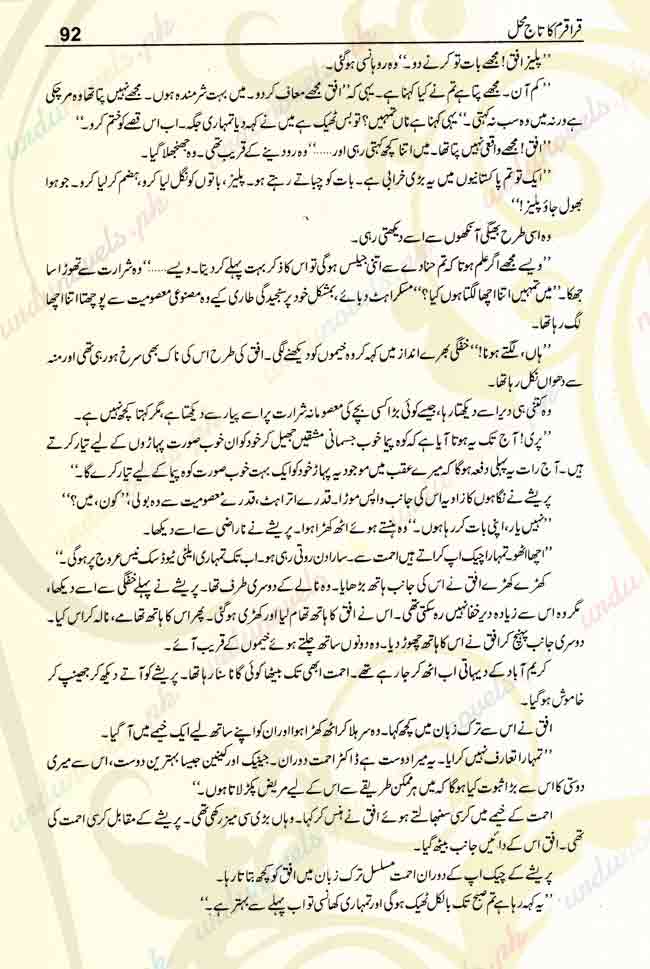 92 قراقرم کا تاج محل
’’پلیز افق! مجھے بات تو کرنے دو۔‘‘ وہ روہانسی ہو گئی۔
’’کم آن۔ مجھے پتا ہے تم نے کیا کہنا ہے۔ یہی کہ ’’افق مجھے معاف کر دو۔ میں بہت شرمندہ ہوں۔ مجھے نہیں پتا تھا وہ مر چکی
ہے ورنہ میں وہ سب نہ کہتی۔‘‘ یہی کہنا ہے ناں تمہیں؟ تو بس ٹھیک ہے میں نے کہہ دیا تمہاری جگہ۔ اب اس قصے کو ختم کرو۔‘‘
’’افق! مجھے واقعی نہیں پتا تھا۔ میں اتنا کچھ کہتی رہی اور......‘‘ وہ رو دینے کے قریب تھی۔ وہ جھنجھلا گیا۔
’’ایک تو تم پاکستانیوں میں یہ بڑی خرابی ہے۔ بات کو چباتے رہتے ہو۔ پلیز، باتوں کو نگل لیا کرو، ہضم کر لیا کرو۔ جو ہوا
بھول جاؤ پلیز!‘‘
وہ اسی طرح بھیگی آنکھوں سے اسے دیکھتی رہی۔
’’ویسے مجھے اگر علم ہوتا کہ تم حنادے سے اتنی جیلس ہو گی تو اس کا ذکر بہت پہلے کر دیتا۔ ویسے......‘‘ وہ شرارت سے تھوڑا سا
جھکا۔ ’’میں تمہیں اتنا اچھا لگتا ہوں کیا؟‘‘ مسکراہٹ دبائے، بمشکل خود پر سنجیدگی طاری کیے وہ مصنوعی معصومیت سے پوچھتا اتنا اچھا
لگ رہا تھا۔
’’ہاں، لگتے ہو نا!‘‘ خفگی بھرے انداز میں کہہ کر وہ خیموں کو دیکھنے لگی۔ افق کی طرح اس کی ناک بھی سرخ ہو رہی تھی اور منہ
سے دھواں نکل رہا تھا۔
وہ کتنی ہی دیر اسے دیکھتا رہا، جیسے کوئی بڑا کسی بچے کی معصومانہ شرارت پر اسے پیار سے دیکھتا ہے، مگر کہتا کچھ نہیں ہے۔
’’پری! آج تک یہ ہوتا آیا ہے کہ کوہ پیما خوب جسمانی مشقیں جھیل کر خود کو ان خوب صورت پہاڑوں کے لیے تیار کرتے
ہیں۔ آج رات یہ پہلی دفعہ ہو گا کہ میرے عقب میں موجود یہ پہاڑ خود کو ایک بہت خوب صورت کوہ پیما کے لیے تیار کرے گا۔‘‘
پریشے نے نگاہوں کا زاویہ اس کی جانب واپس موڑا۔ قدرے اتراہٹ، قدرے معصومیت سے وہ بولی، ’’کون، میں؟‘‘
’’نہیں یار، اپنی بات کر رہا ہوں۔‘‘ وہ ہنستے ہوئے اٹھ کھڑا ہوا۔ پریشے نے ناراضی سے اسے دیکھا۔
’’اچھا اٹھو۔ تمہارا چیک اپ کراتے ہیں احمت سے۔ سارا دن روتی رہی ہو۔ اب تک تمہاری ایلٹی ٹیوڈ سک نیس عروج پر ہو گی۔‘‘
کھڑے کھڑے افق نے اس کی جانب ہاتھ بڑھایا۔ وہ نالے کے دوسری طرف تھا۔ پریشے نے پہلے خفگی سے اسے دیکھا،
مگر وہ اس سے زیادہ دیر خفا نہیں رہ سکتی تھی۔ اس نے افق کا ہاتھ تھام لیا اور کھڑی ہو گئی۔ پھر اس کا ہاتھ تھامے، نالہ کراس کیا۔
دوسری جانب پہنچ کر افق نے اس کا ہاتھ چھوڑ دیا۔ وہ دونوں ساتھ چلتے ہوئے خیموں کے قریب آئے۔
کریم آباد کے دیہاتی اب اٹھ کر جا رہے تھے۔ احمت ابھی تک بیٹھا کوئی گانا سنا رہا تھا۔ پریشے کو آتے دیکھ کر جھینپ کر
خاموش ہو گیا۔
افق نے اس سے ترک زبان میں کچھ کہا۔ وہ سر ہلا کر اٹھ کھڑا ہوا اور ان کو اپنے ساتھ لیے ایک خیمے میں آ گیا۔
’’تمہارا تعارف نہیں کرایا۔ یہ میرا دوست ہے ڈاکٹر احمت دوران۔ جینیک اور کینین جیسا بہترین دوست، اس سے میری
دوستی کا اس سے بڑا ثبوت کیا ہو گا کہ میں ہر ممکن طریقے سے اس کے لیے مریض پکڑ لاتا ہوں۔‘‘
احمت کے خیمے میں کرسی سنبھالتے ہوئے افق نے ہنس کر کہا۔ وہاں بڑی سی میز رکھی تھی۔ پریشے کے مقابل کرسی احمت کی
تھی۔ افق اس کے دائیں جانب بیٹھ گیا۔
پریشے کے چیک اپ کے دوران احمت مسلسل ترک زبان میں افق کو کچھ بتاتا رہا۔
’’یہ کہہ رہا ہے تم صبح تک بالکل ٹھیک ہو گی اور تمہاری کھانسی تو اب پہلے سے بہتر ہے۔‘‘
urdunovels.pk